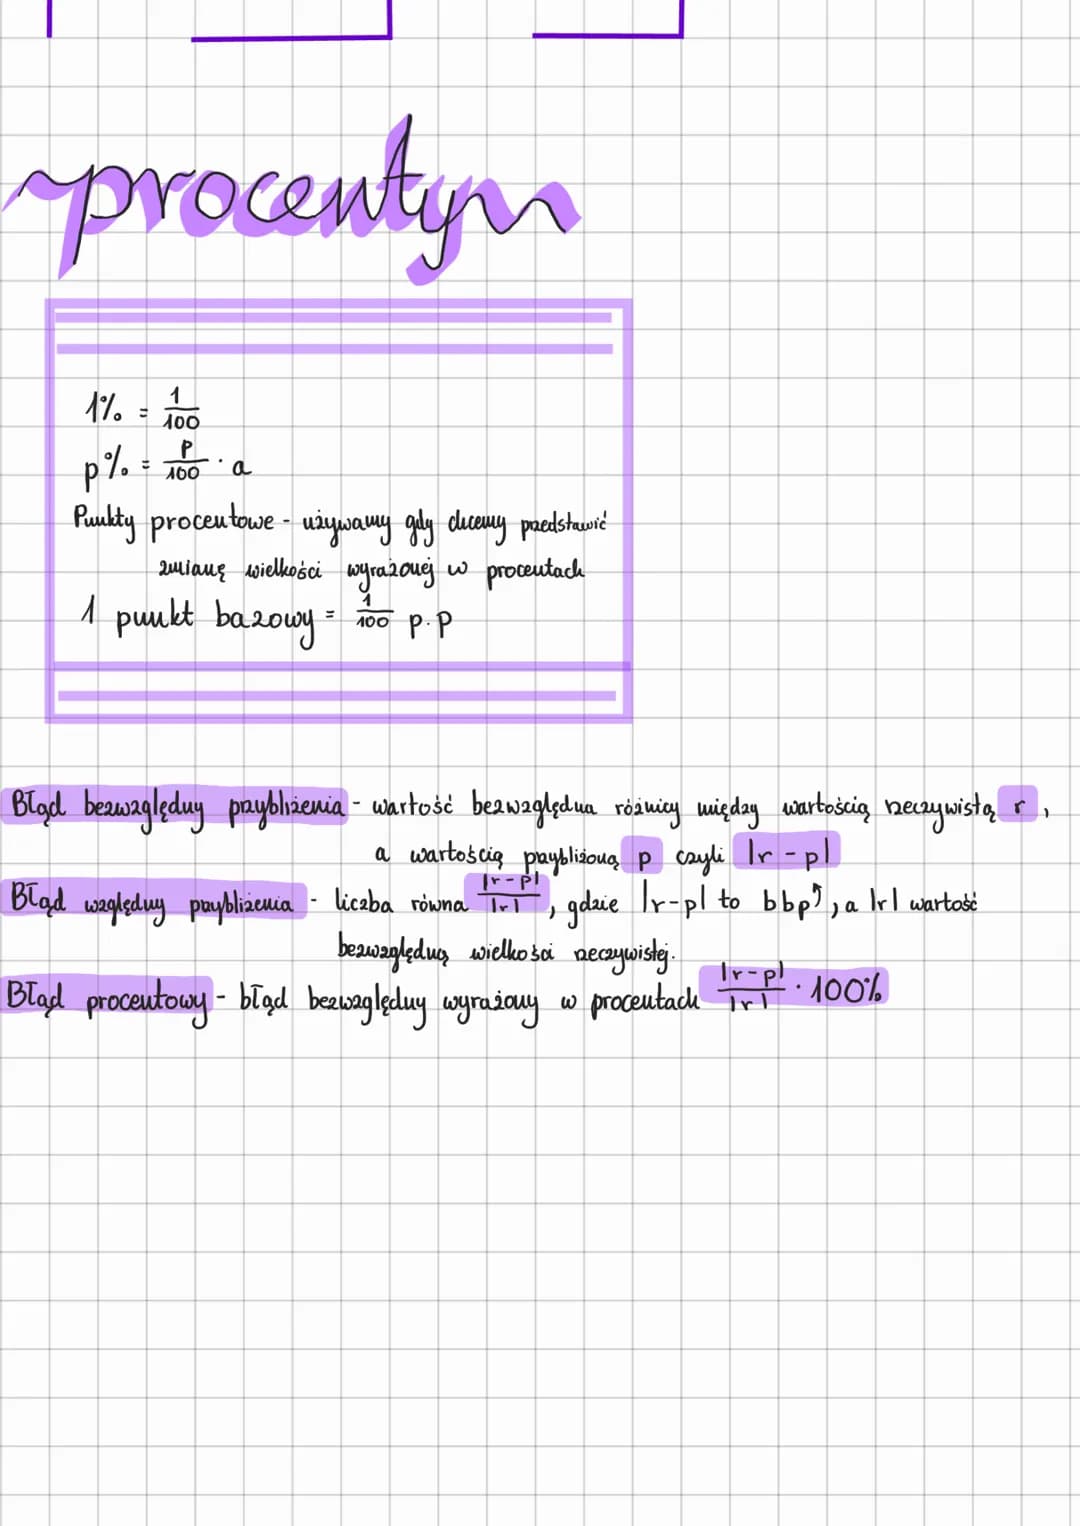 ~procenty~
1% = 1/100
p% = p/100 · a
Punkty procentowe - używamy gdy chcemy przedstawić
zmianę wielkości wyrażonej w procentach
1 punkt bazowy = 1/100 p.p
Błąd bezwzględny przybliżenia - wartość bezwzględna różnicy między wartością rzeczywistą r,
a wartością przybliżoną p czyli |r-p|
Błąd względny przybliżenia - liczba równa |r-p|/|r|, gdzie |r-p| to bbp↑, a |r| wartość
bezwzględną wielkości rzeczywistej.
Błąd procentowy - błąd bezwzględny wyrażony w procentach |r-p|/|r| · 100%